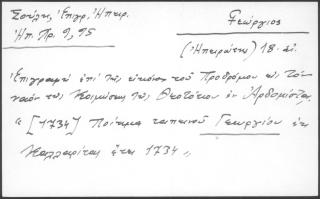 Σούλης, Ἐπιγρ. Ἠπειρ.
Ἠπ. Χρ. 9, 95
Γεώργιος
(Ἠπειρώτης) 18. αἰ.
Ἐπιγραφὴ ἐπὶ τῆς εἰκόνος τοῦ Προδρόμου εἰς τὸν
ναὸν τῆς Κοιμήσεως τῆς Θεοτόκου ἐν
"[1734] Ποίημα ταπεινοῦ Γεωργίου ἐκ
ἔτει 1734"